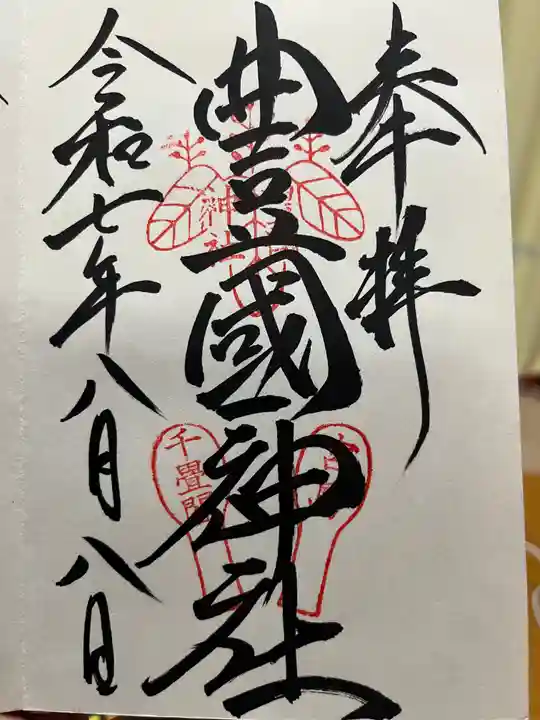 奉拝
豊國神社
令和七年八月八日
神社
千畳閣